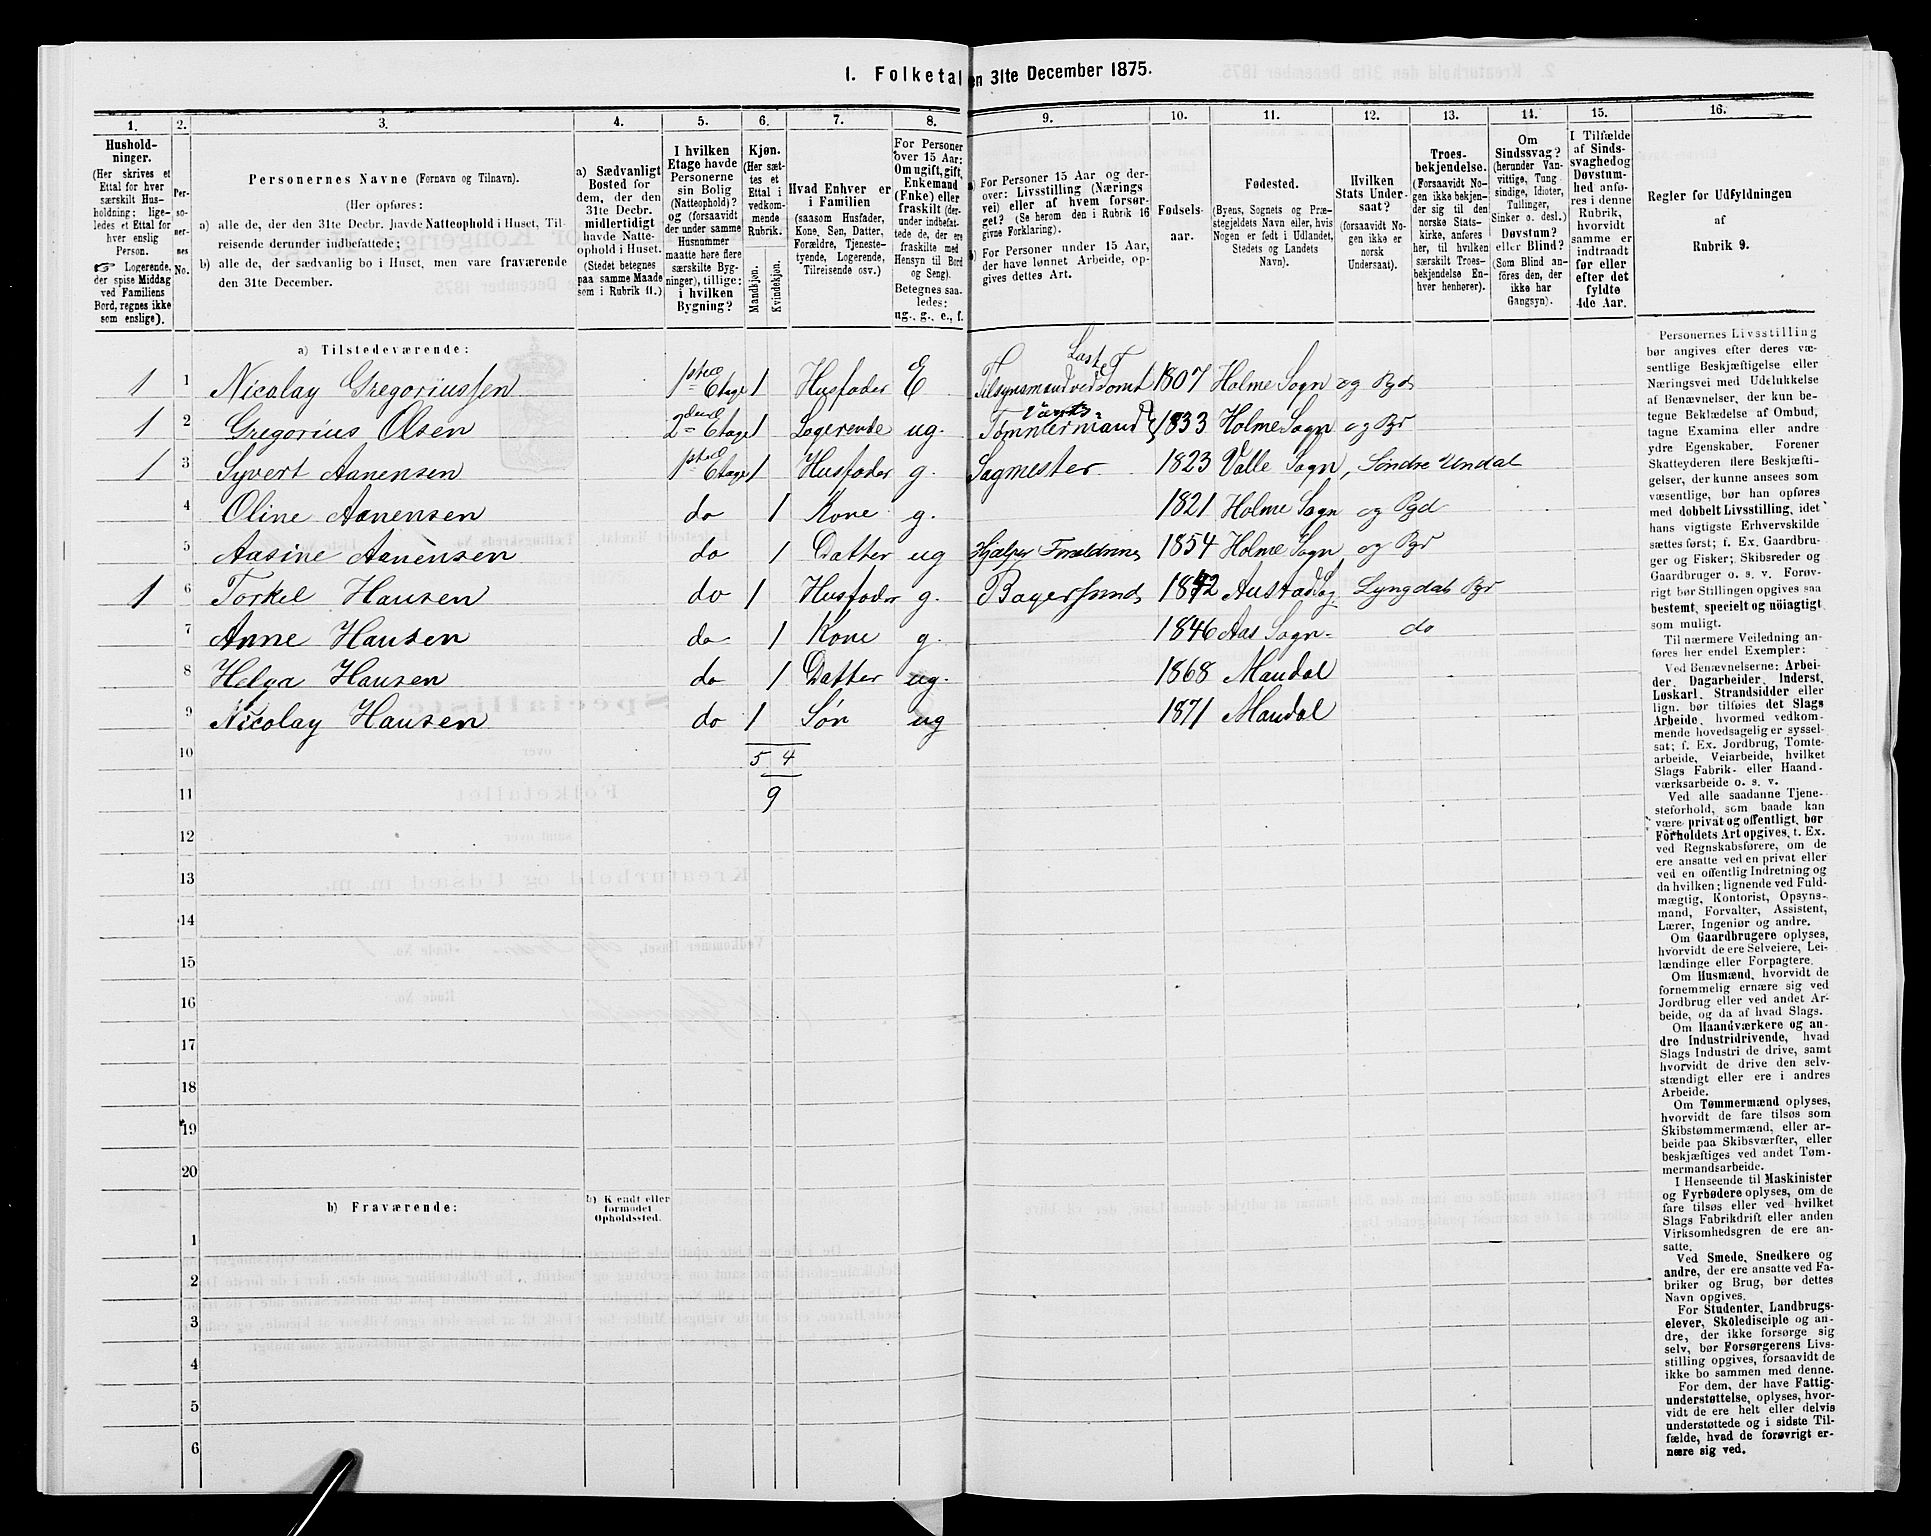 1. Folketal en 31te December 1875.
1. 2. 3. 4. 5. 6. 7. 8. 9. 10. 11. 12. 13. 14. 15. 16.
Husholdninger.
(Her skrives et
Ettal for hver
særskilt Hus-
holdning; lige-
ledes et Ettal for
hver enslig
Person.
Logerende,
der spise Middag
ved Familiens
Bord, regnes ikke
som enslige).
Per-
so-
ner-
nes
No.
Personernes Navne (Fornavn og Tilnavn).
(Her opføres:
a) alle de, der den 31te Decbr. havde Natteophold i Huset, Til-
reisende derunder indbefattede;
b) alle de, der sædvanlig bo i Huset, men vare fraværende
den 31te December.
a) Sædvanligt
Bosted for
dem, der den
31te Decbr.
midlertidigt
havde Natte-
ophold i Huset.
(Stedet betegnes
paa samme Maade
som i Rubrik 11.)
I hvilken
Etage havde
Personerne
sin Bolig
(Natteophold)?
og (forsaavidt
der under samme
Husnummer
maatte høre flere
særskilte Byg-
ninger), tillige:
i hvilken
Bygning?
Kjøn.
(Her sæt-
tes et
Ettal i
vedkom-
mende
Rubrik.
Mandkjøn.
Kvindekjøn.
Hvad Enhver er
i Familien
(saasom Husfader,
Kone, Søn, Datter,
Forældre, Tjeneste-
tyende, Logerende,
Tilreisende osv.)
For Personer
over 15 Aar:
Om ugift, gift,
Enkemand
(Enke) eller
fraskilt (der-
under indbefat-
tede de, der ere
fraskilte med
Hensyn til Bord
og Seng).
Betegnes saa-
ledes:
ug., g., e., f.
a) For Personer 15 Aar og der-
over: Livsstilling (Nærings
vei) eller af hvem forsør-
get? (Se herom den i Rubrik 16
givne Forklaring).
b) For Personer under 15 Aar,
der have lønnet Arbeide, op-
gives dettes Art.
Fødsels-
aar.
Fødested.
(Byens, Sognets og Præ-
stegjeldets Navn eller, hvis
Nogen er født i Udlandet,
Stedets og Landets
Navn).
Hvilken
Stats Under-
saat?
(forsaavidt No-
gen ikke er
norsk
Undersaat).
Troes-
bekjendelse.
(Forsaavidt No-
gen ikke bekjen-
der sig til den
norske Stats-
kirke, anføres
her, til hvilken
særskilt Troes-
bekjendelse En-
hver henhører).
Om
Sindssvag?
(herunder Van-
vittige, Tung-
sindige, Idioter,
Tullinger,
Sinker o. desl.)
Døvstum?
eller Blind?
(Som Blind an-
føres den, der
ikke har
Gangsyn).
I Tilfælde
af Sinds-
svaghed og
Døvstum-
hed anfø-
res i denne
Rubrik,
hvorvidt
samme er
indtraadt
før eller
efter det
fyldte
4de Aar.
Regler for Udfyldningen
af
Rubrik 9.
a) Tilstedeværende:
1 1 Nicolay Gregoriussen 1ste Etage 1 Husfader E Tilsynsmand ved 1807 Holme Sogn og Pgd
1 2 Gregorius Olsen 2den Etage 1 Logerende ug. Tømmermand 1833 Holme Sogn og Pr
1 3 Syvert Aanensen 1ste Etage 1 Husfader g. Sagmester 1823 Valle Sogn, Søndre Undal
4 Oline Aanensen do 1 Kone g. 1821 Holme Sogn og Pgd
5 Aasine Aanensen do 1 Datter ug Hjælper Forældrene 1854 Holme Sogn og Pr
1 6 Torkel Hansen do 1 Husfader g. 1842 Austad Sog Lyngdals Pr
7 Anne Hansen do 1 Kone g. 1846 Aas Sogn do
8 Helga Hansen do 1 Datter ug. 1868 Mandal
9 Nicolay Hansen do 1 Søn ug 1871 Mandal
10 5 4
11 9
12
13
14
15
16
17
18
19
20
b) Fraværende:
b) Kjendt eller
formodet
Opholdssted.
1
2
3
4
5
6
Personernes Livsstilling
bør angives efter deres væ-
sentlige Beskjæftigelse eller
Næringsvei med Udelukkelse
af Benævnelser, der kun be-
tegne Beklædelse af Ombud,
tagne Examina eller andre
ydre Egenskaber. Forener
Skatteyderen flere Beskjæfti-
gelser, der kunne ansees som
væsentlige, bør han opføres
med dobbelt Livsstilling, idet
hans vigtigste Erhvervskilde
sættes først; f. Ex. Gaardbru-
ger og Fisker; Skibsreder og
Gaardbruger o. s. v. Forøv-
rigt bør Stillingen opgives saa
bestemt, specielt og nöiagtigt
som muligt.
Til nærmere Veiledning an-
føres her endel Exempler:
Ved Benævnelserne: Arbei-
der, Dagarbeider, Inderst,
Løskarl, Strandsidder eller
lign. bør tilføies det Slags
Arbeide, hvormed vedkom-
mende hovedsagelig er syssel-
sat; f. Ex. Jordbrug, Tomte-
arbeide, Veiarbeide, hvilket
Slags Fabrik- eller Haand-
værksarbeide o. s. v.
Ved alle saadanne Tjene-
steforhold, som baade kan
være privat og offentligt, bør
Forholdets Art opgives, t. Ex.
ved Regnskabsførere, om de
ere ansatte ved en privat eller
ved en offentlig Indretning og
da hvilken; lignende ved Fuld-
mægtig, Kontorist, Opsyns-
mand, Forvalter, Assistent,
Lærer, Ingeniør og andre.
Om Gaardbrugere oplyses,
hvorvidt de ere Selveiere, Lei-
lændinge eller Forpagtere.
Om Husmænd, hvorvidt de
fornemmelig ernære sig ved
Jordbrug eller ved andet Ar-
beide, og da af hvad Slags.
Om Haandværkere og an-
dre Industridrivende, hvad
Slags Industri de drive, samt
hvorvidt de drive den selv-
stændigt eller ere i andres
Arbeide.
Om Tømmermænd oplyses,
hvorvidt de fare tilsøs som
Skibstømmermænd, eller ar-
beide paa Skibsværfter, eller
beskjæftiges ved andet Tøm-
mermandsarbeide.
I Henseende til Maskinister
og Fyrbødere oplyses, om de
fare tilsøs eller ved hvilket
Slags Fabrikdrift eller anden
Virksomhedsgren de ere an-
satte.
Ved Smede, Snedkere og
andre, der ere ansatte ved Fa-
briker og Brug, bør dettes
Navn opgives.
For Studenter, Landbrugs-
elever, Skoledisciple og an-
dre, der ikke forsørge sig
selv, bør Forsørgerens Livs-
stilling opgives, forsaavidt de
ikke bo sammen med denne.
For dem, der have Fattig-
understøttelse, oplyses, hvor-
vidt de ere helt eller delvis
understøttede og i sidste Til-
fælde, hvad de forøvrigt er-
nære sig ved.